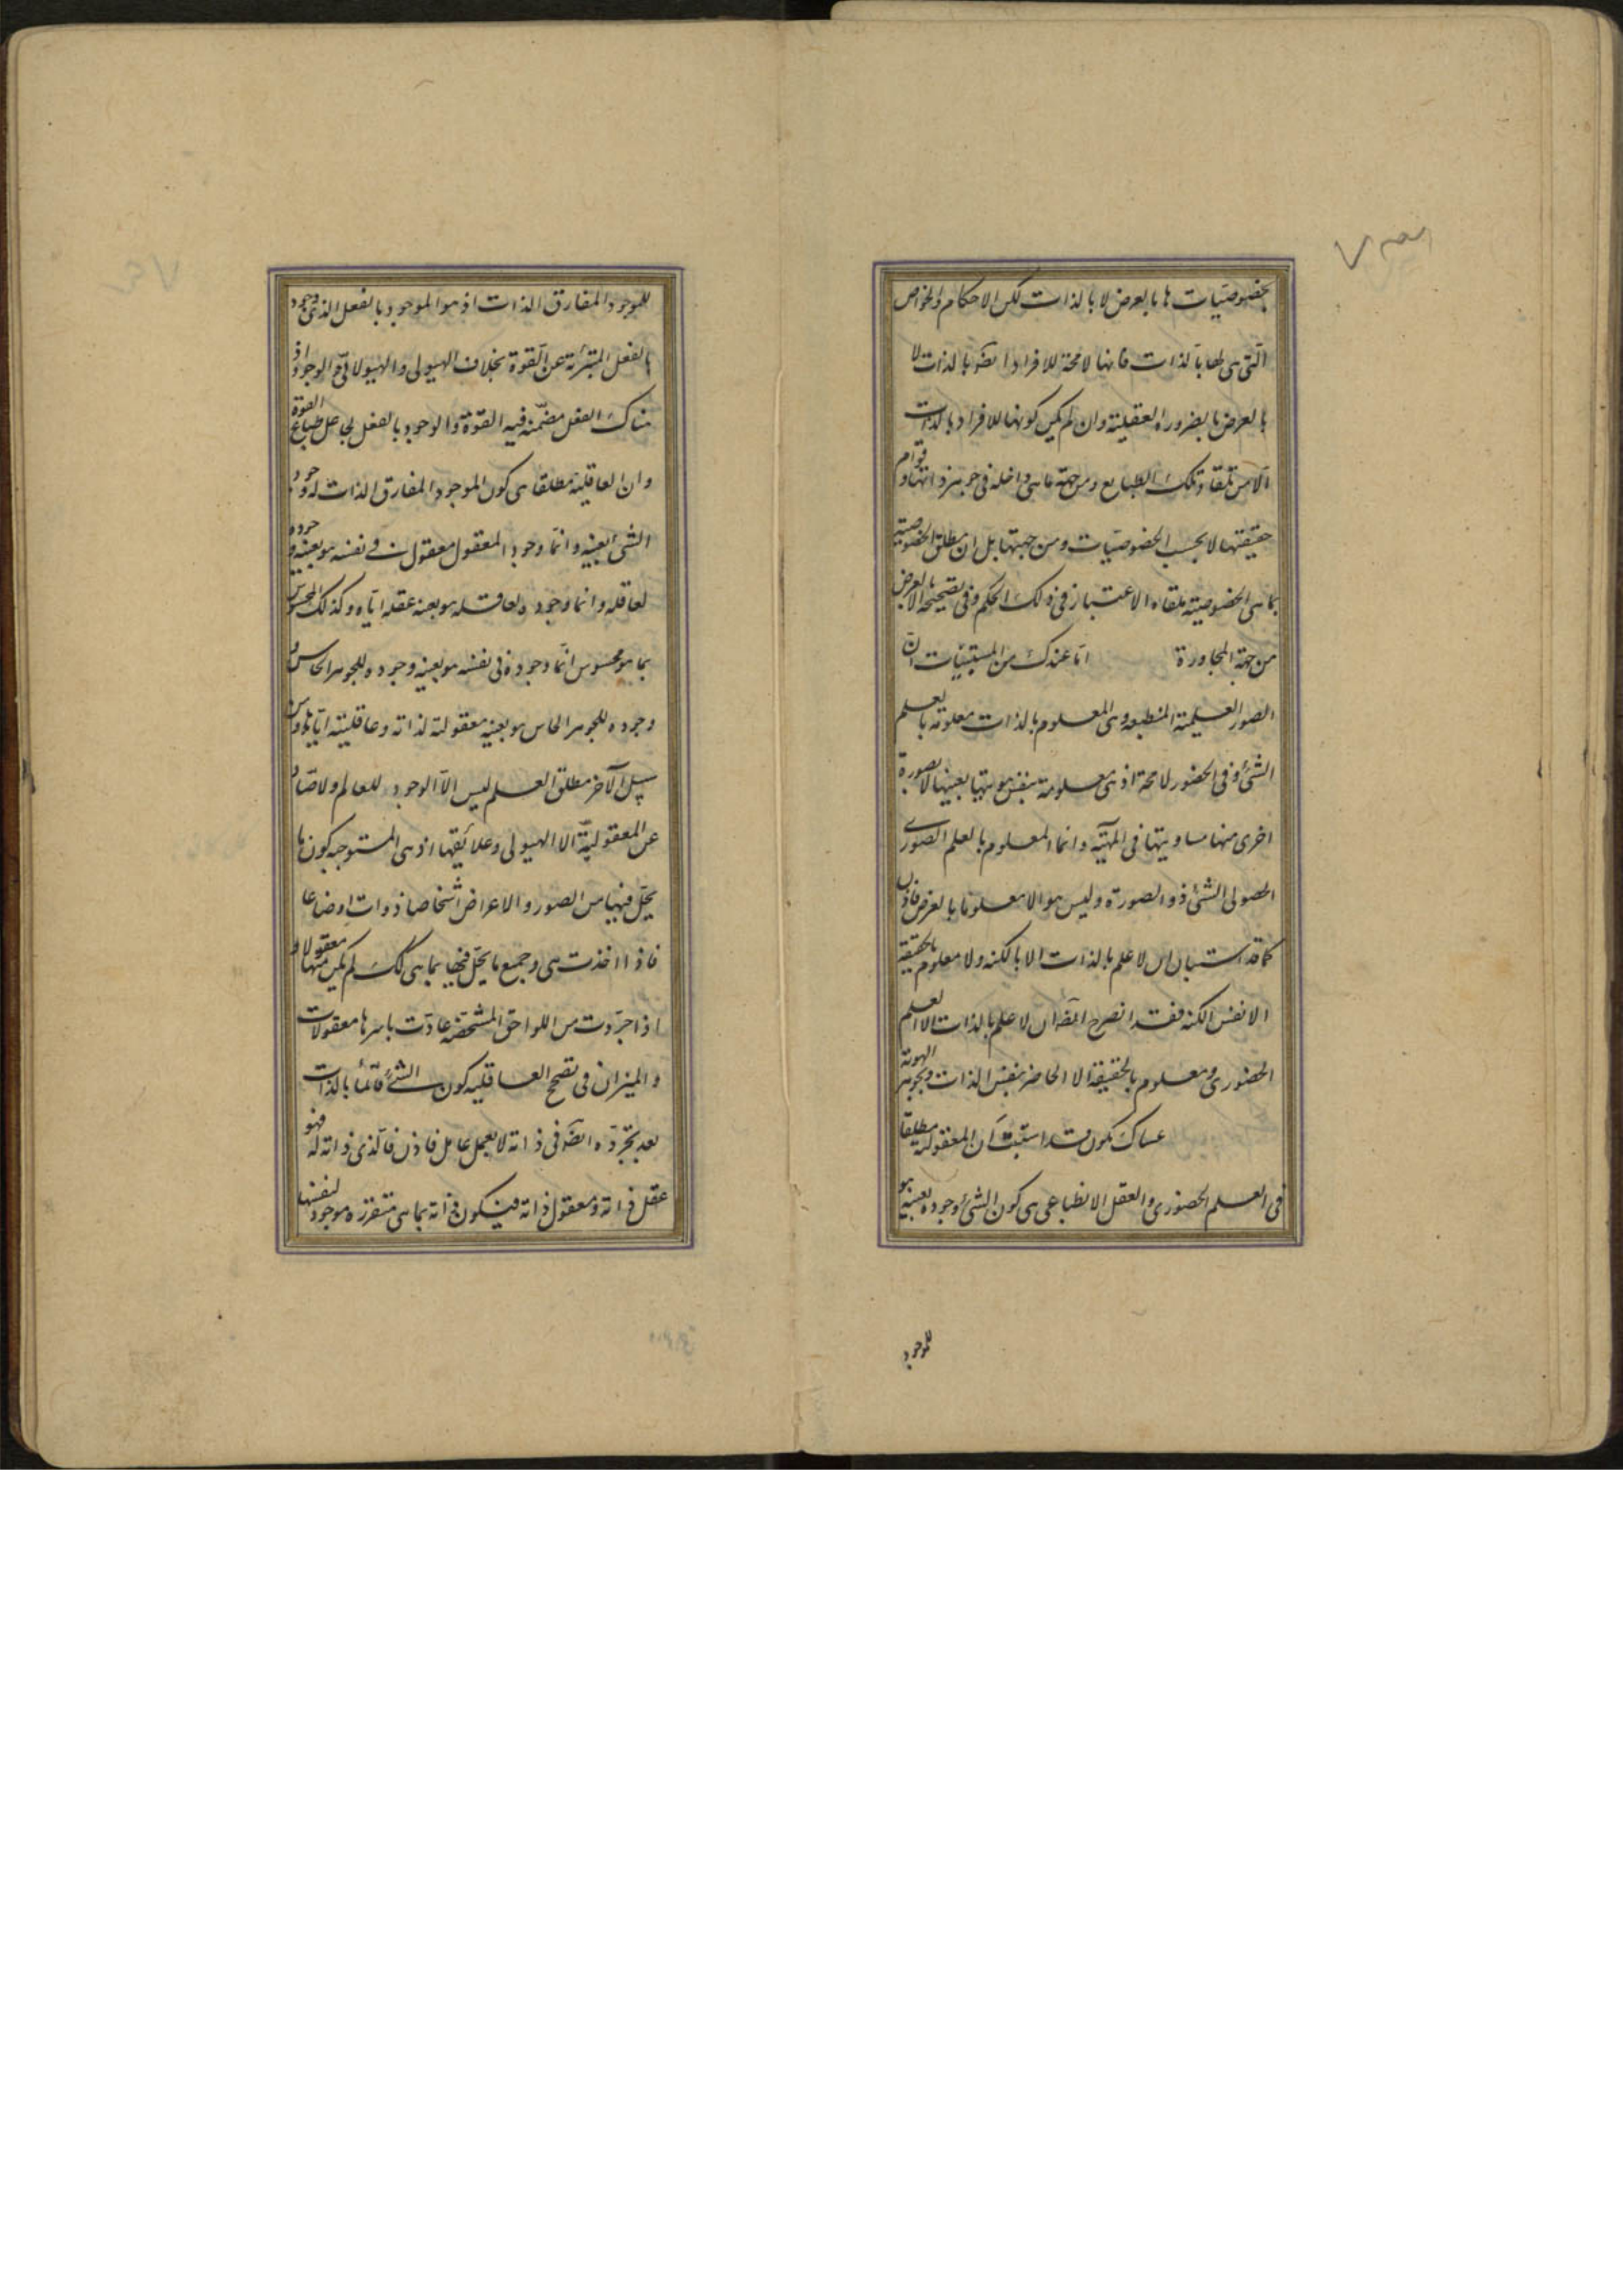 بخصوصيات ها بالعرض لا بالذات لكن الاحكام والخواص
التى هى لها بالذات فانها لا محة للافراد ايضو بالذات لا
بالعرض بالضرورة العقلية وان لم يكن كونها للافراد بالذات
الا من تلقاء تلك الطبايع ومن جهة ماهى داخلة فى جوهر ذواتها وقوام
حقيقتها لا بحسب الخصوصيات ومن جهتها بل ان مطلق الخصوصية
بما هى الخصوصية ملقاه الاعتبار فى ذلك الحكم وفى تصحيحه الا بالعرض
من جهة المجاورة اما عندك من المستبينات ان
الصور العلمية المنطبعة وهى المعلوم بالذات معلومة بالعلم
الشئ وفى الحضور لا محة اذ هى معلومة بنفس هويتها بعينها لا بصورة
اخرى منها مساويتها فى المهية وانما المعلوم بالعلم الصورى
الحصولى الشئ ذو الصورة وليس هو الا معلوما بالعرض فاذن
كما قد استبان ان لا علم بالذات الا بالكنه ولا معلوم بالحقيقة
الا نفس الكنه فقد انصرح ايضا ان لا علم بالذات الا العلم
الحضورى ومعلوم بالحقيقة الا الحاضر بنفس الذات وبجوهر الهوية
عساك تكون قد استيقنت ان المعقولية مطلقا
فى العلم الحضورى والعقل الانطباعى هى كون الشئ وجوده بعينه هو
للموجود
للموجود المفارق الذات اذ هو الموجود بالفعل الذى وجوده
بالفعل المتبرئة عن القوة بخلاف الهيولى والهيولانى الوجود اذ
هناك الفعل مضمنه فيه القوة والوجود بالفعل بجاعل طباع القوة
وان العاقلية مطلقا هى كون الموجود المفارق الذات له وجود
الشئ بعينه وانما وجود المعقول معقول فى نفسه هو بعينه وجوده
لعاقله وانما وجوده لعاقله هو بعينه عقله اياه وكذلك المحسوس
بما هو محسوس انما وجوده فى نفسه هو بعينه وجوده للجوهر الحاس و
وجوده للجوهر الحاس هو بعينه معقولية لذاته وعاقليته اياها ومن
سبيل آخر مطلق العلم ليس الا الوجود للعالم ولا صاد
عن المعقولية الا الهيولى وعلائقها اذ هى المستوجبه كون ما
يحل فيها من الصور والاعراض اشخاصا ذوات اوضاعا
فاذا اخذت هى وجميع ما يحل فيها بما هى كك لم يكن منها معقولا و
اذا جردت من اللواحق المشخصة عادت باسرها معقولات
والميزان فى تصحيح العاقلية كون الشئ قائما بالذات
بعد تجرده ايضو فى ذاته لا بعمل عامل فاذن فالذى ذاته له فهو
عقل ذاته ومعقول ذاته فيكون ذاته بما هى متقررة موجود لنفسها